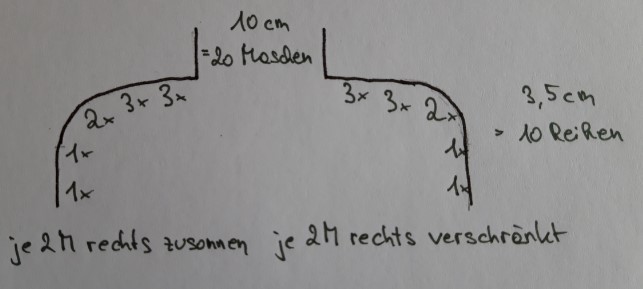 10 cm
= 20 Maschen
3x 3x
2x
3x 3x
2x
1x
1x
1x
1x
3,5 cm
= 10 Reihen
je 2 M rechts zusammen je 2 M rechts verschränkt